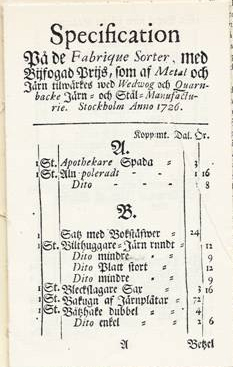 Specification
På de Fabrique Sorter, med
Bijfogad Prijs, som af Metal och
Järn tilwärkes wed Wedwog och Quarn-
backe Järn- och Stål-Manufactu-
rie. Stockholm Anno 1726.
Kopp:mt. Dal. Ör.
A.
1 St. Apothekare Spada - 3
1 St. Aln poleradt - - 1 16
Dito - - - 8
B.
1 Satz med Bokstäfwer = 24
1 St. Bilthuggare-Järn runndt = 12
Dito mindre = = 9
Dito Platt stort = 12
Dito mindre = 9
1 St. Bleckslagare Sax = 3 16
1 St. Bakugn af Järnplåtar = 72
1 St. Båtzhake dubbel = = 4
Dito enkel = = 2 6
A Betzel